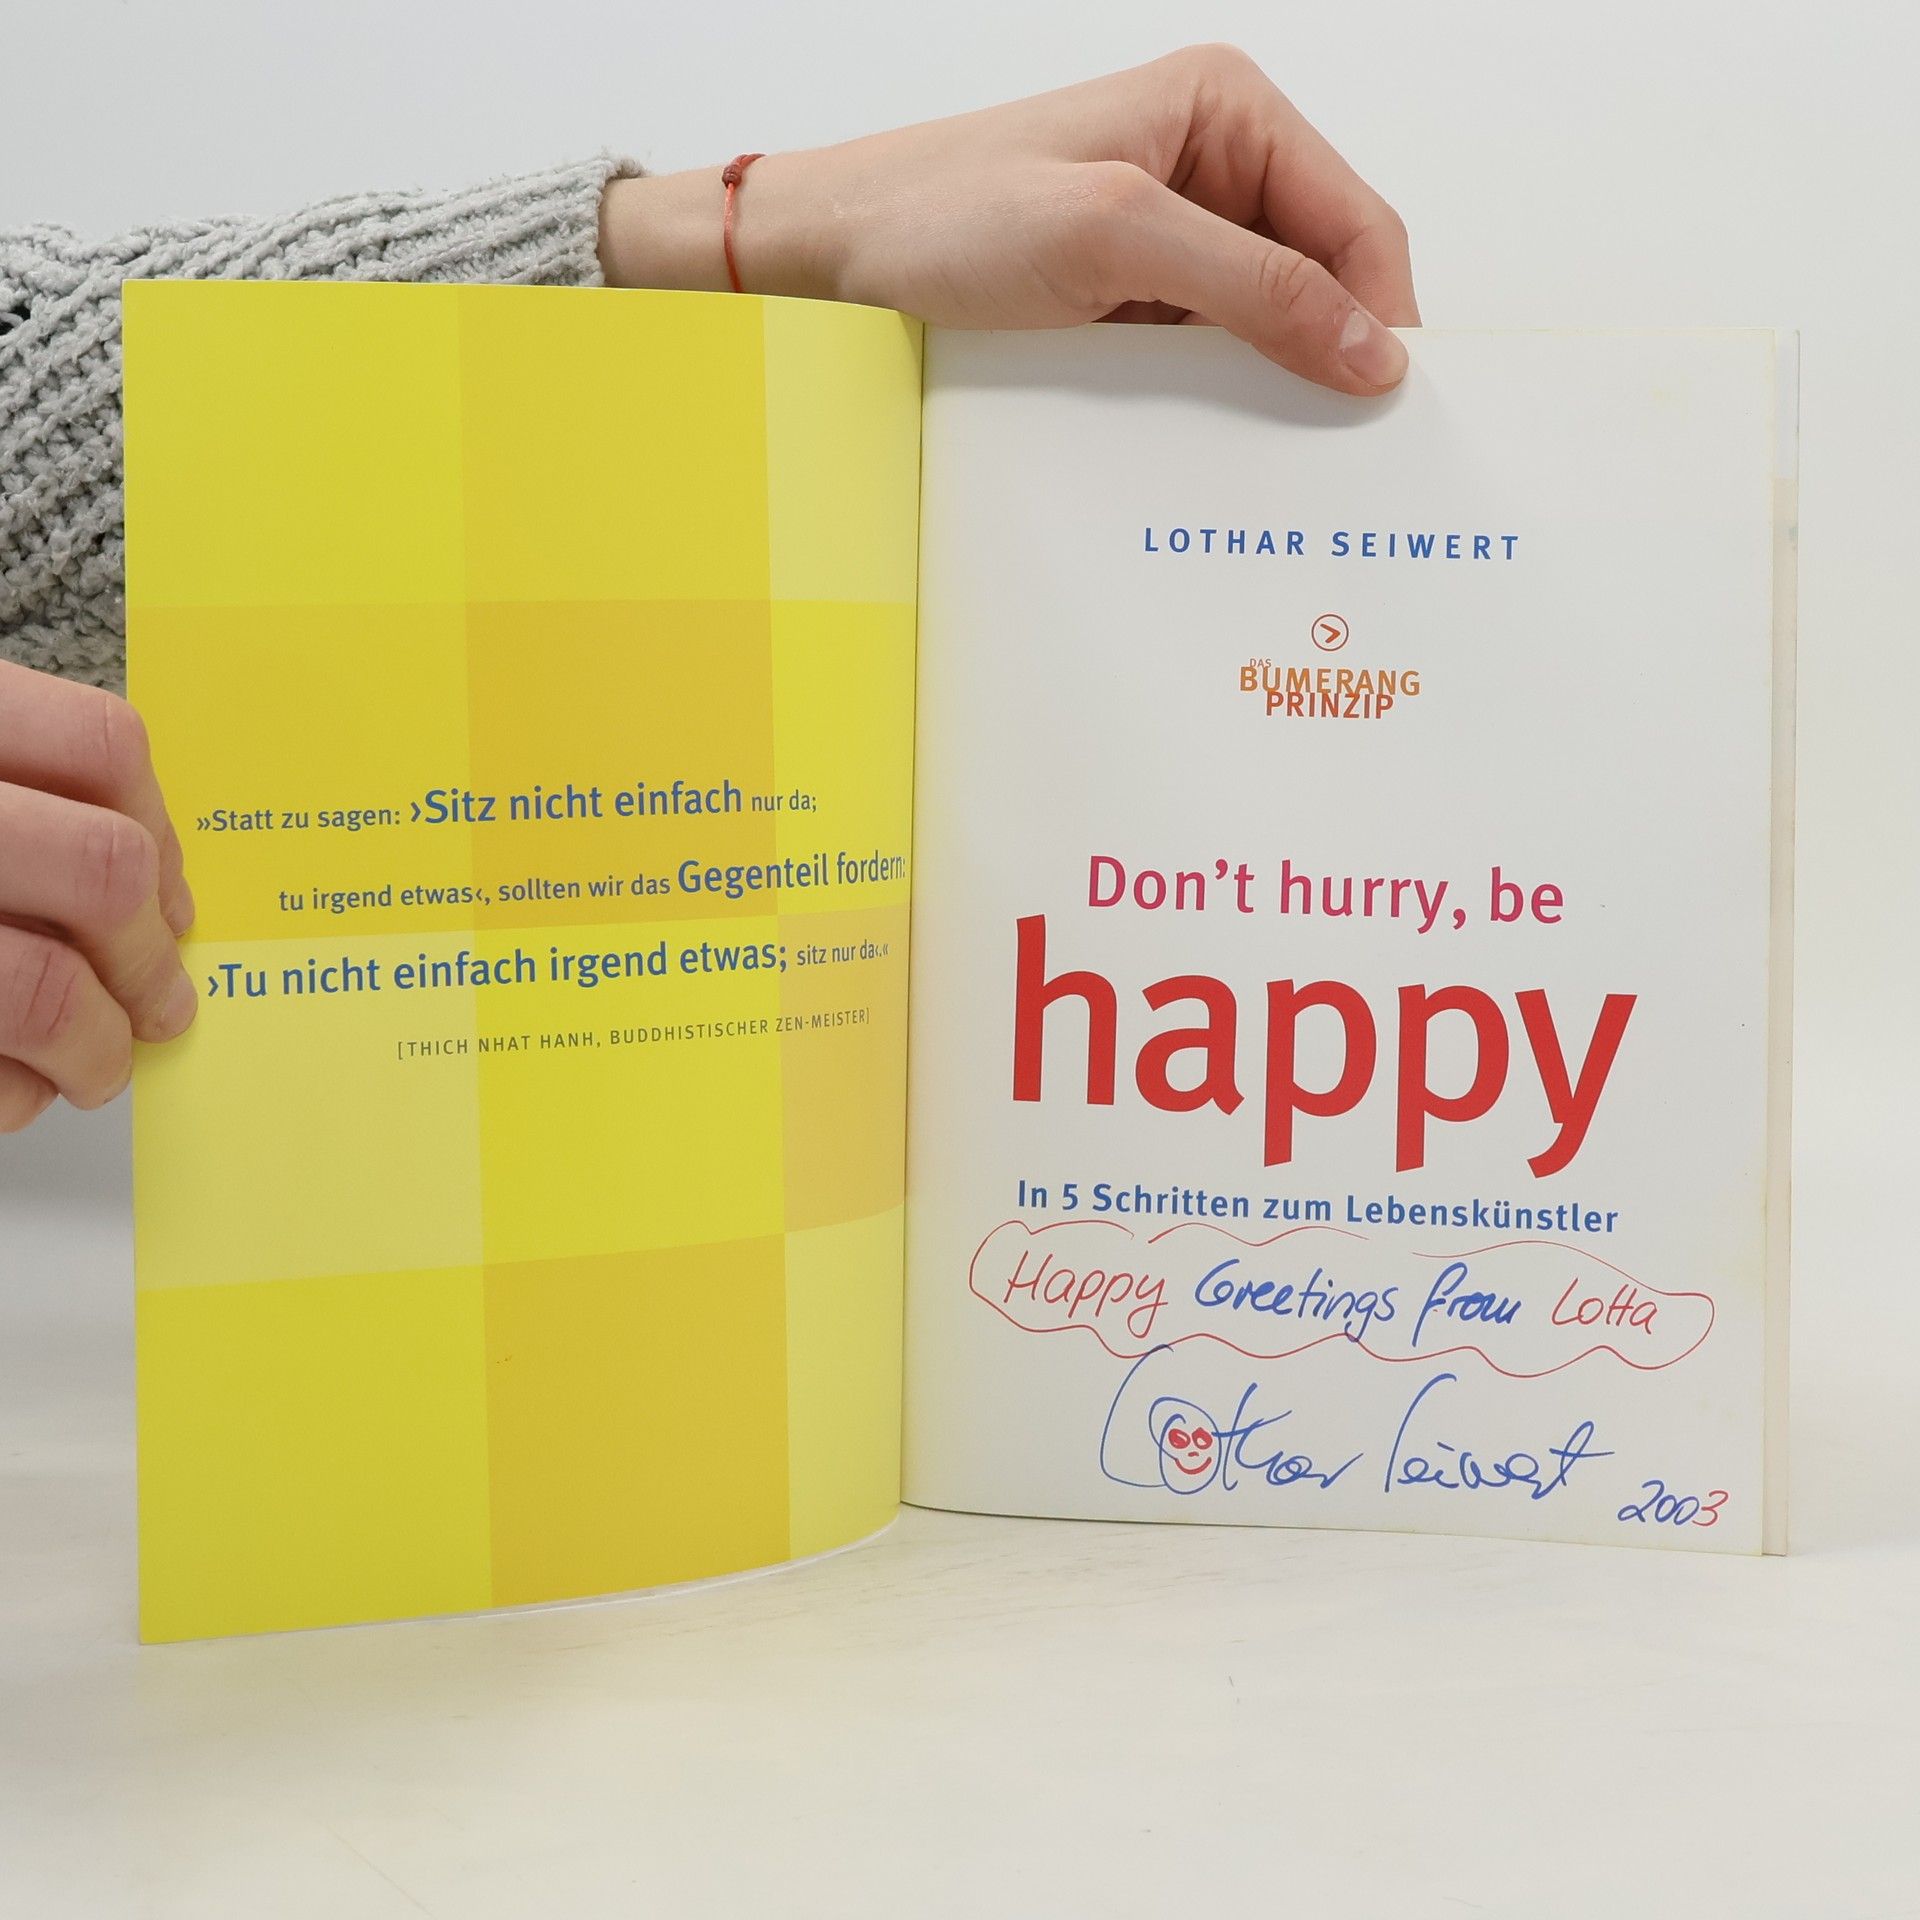 »Statt zu sagen: ›Sitz nicht einfach nur da;
tu irgend etwas‹, sollten wir das Gegenteil fordern:
›Tu nicht einfach irgend etwas; sitz nur da‹.«
[THICH NHAT HANH, BUDDHISTISCHER ZEN-MEISTER]
LOTHAR SEIWERT
DAS
BUMERANG
PRINZIP
Don’t hurry, be
happy
In 5 Schritten zum Lebenskünstler
Happy Greetings from Lotta
Lothar Seiwert
2003